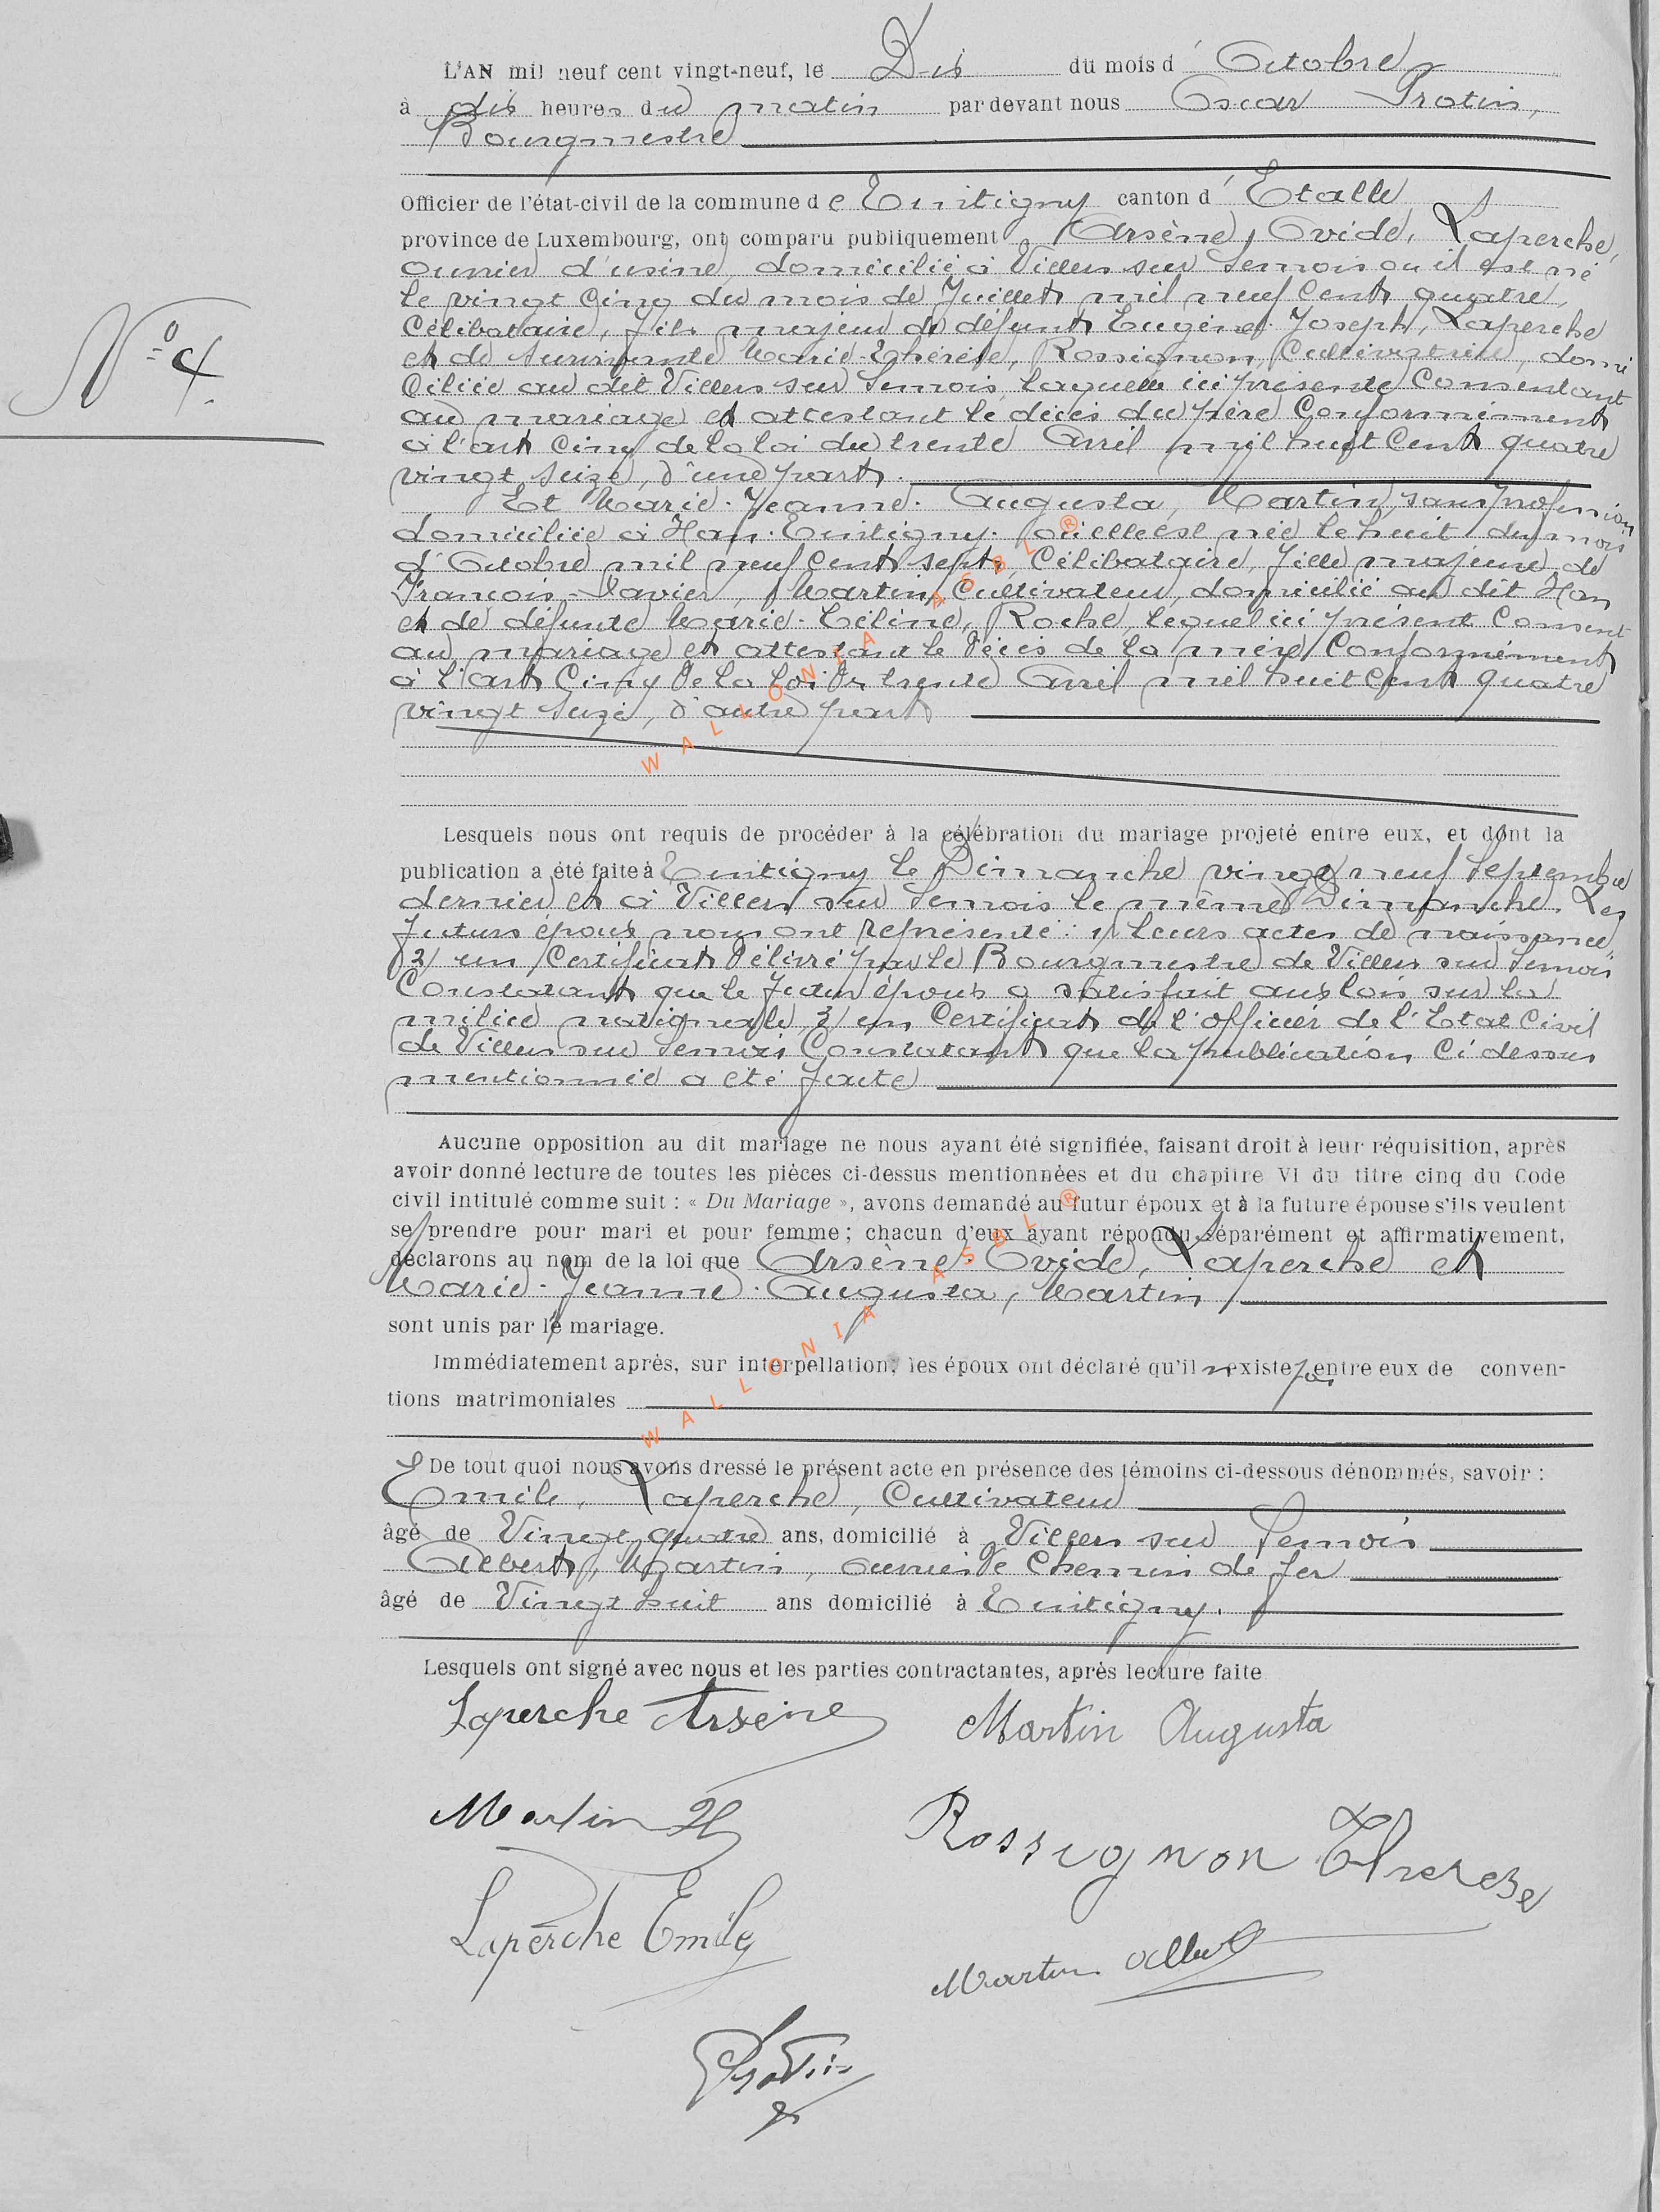 L'AN mil neuf cent vingt-neuf, le Dix du mois d' Octobre
à dix heures du matin par devant nous Oscar Protin,
Bourgmestre
Officier de l'état-civil de la commune de Tintigny canton d' Etalle
province de Luxembourg, ont comparu publiquement Arsène, Ovide, Laperche,
ouvrier d'usine, domicilié à Villers sur Semois où il est né
le vingt cinq du mois de Juillet mil neuf cent quatre,
Célibataire, fils majeur de défunt Eugène Joseph, Laperche
et de survivante Marie-Thérèse, Rossignon, Cultivatrice, domi
ciliée au dit Villers sur Semois, laquelle ici présente Consentant
au mariage et attestant le décès du père Conformément
à l'art Cinq de la loi du trente Avril mil huit Cent quatre
vingt seize, d'une part.
Et Marie-Jeanne-Augusta, Martin, sans profession
domiciliée à Han-Tintigny où elle est née le huit du mois
d'Octobre mil neuf Cent sept, Célibataire, fille majeure de
François-Xavier, Martin, Cultivateur, domicilié au dit Han
et de défunte Marie-Céline, Roche, lequel ici présent Consent
au mariage et attestant le Décès de la mère Conformément
à l'art Cinq de la Loi du trente Avril mil huit Cent quatre
vingt seize, d'autre part
Lesquels nous ont requis de procéder à la célébration du mariage projeté entre eux, et dont la
publication a été faite à Tintigny le Dimanche vingt neuf Septembre
dernier et à Villers sur Semois le même Dimanche. Les
futurs époux nous ont représenté : 1/ leurs actes de naissance,
2/ un Certificat Délivré par le Bourgmestre de Villers sur Semois
Constatant que le futur époux a satisfait aux lois sur la
milice nationale 3/ un Certificat de l'officier de l'Etat Civil
de Villers sur Semois Constatant que la publication Ci dessus
mentionnée a été faite
Aucune opposition au dit mariage ne nous ayant été signifiée, faisant droit à leur réquisition, après
avoir donné lecture de toutes les pièces ci-dessus mentionnées et du chapitre VI du titre cinq du Code
civil intitulé comme suit : « Du Mariage », avons demandé au futur époux et à la future épouse s'ils veulent
se prendre pour mari et pour femme ; chacun d'eux ayant répondu séparément et affirmativement,
déclarons au nom de la loi que Arsène-Ovide, Laperche et
Marie-Jeanne-Augusta, Martin
sont unis par le mariage.
Immédiatement après, sur interpellation, les époux ont déclaré qu'il n'existe pas entre eux de conven-
tions matrimoniales
De tout quoi nous avons dressé le présent acte en présence des témoins ci-dessous dénommés, savoir :
Emile, Laperche, Cultivateur
âgé de Vingt quatre ans, domicilié à Villers sur Semois
Albert, Martin, ouvrier de Chemin de fer
âgé de Vingt huit ans domicilié à Tintigny.
Lesquels ont signé avec nous et les parties contractantes, après lecture faite
Laperche Arsène Martin Augusta
Martin Rossignon Therese
Laperche Emile Martin Albert
Protin
N° 4.
WALLONIA ASBL ®
WALLONIA ASBL ®